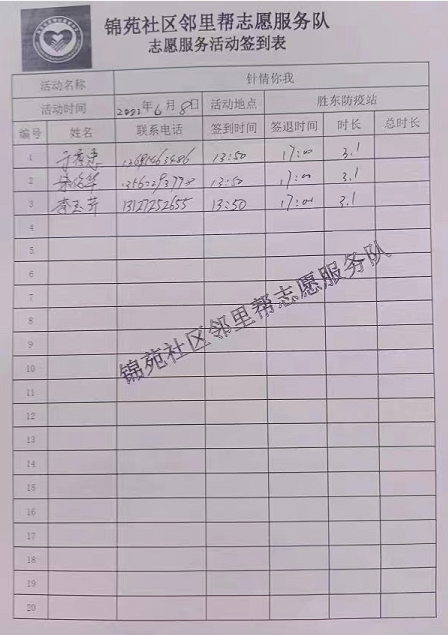 锦苑社区邻里帮志愿服务队
志愿服务活动签到表
活动名称 针情你我
活动时间 2022年6月8日 活动地点 胜东防疫站
编号 姓名 联系电话 签到时间 签退时间 时长 总时长
1 13:50 17:00 3.1
2 13:50 17:00 3.1
3 李玉芹 13127252655 13:50 17:00 3.1
4
5
6
7
8
9
10
11
12
13
14
15
16
17
18
19
20
锦苑社区邻里帮志愿服务队